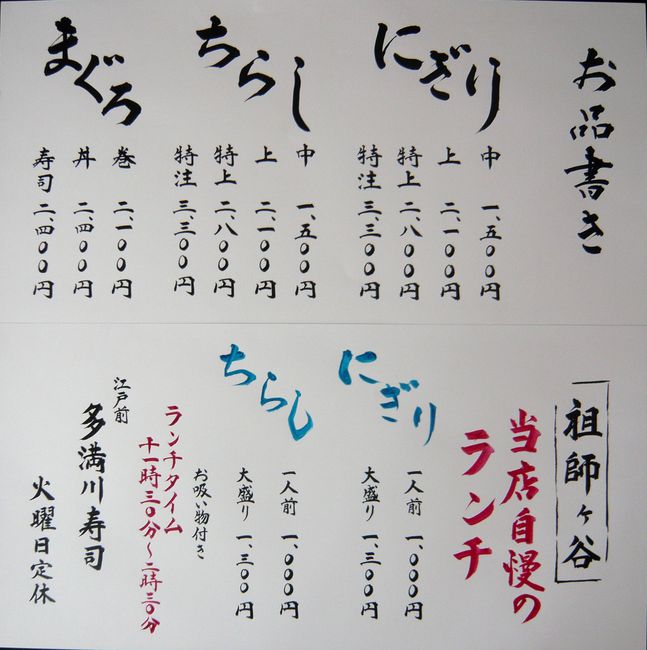 お品書き
にぎり
中 一、五〇〇円
上 二、一〇〇円
特上 二、八〇〇円
特注 三、三〇〇円
ちらし
中 一、五〇〇円
上 二、一〇〇円
特上 二、八〇〇円
特注 三、三〇〇円
まぐろ
巻 二、一〇〇円
丼 二、四〇〇円
寿司 二、四〇〇円
祖師ヶ谷
当店自慢の
ランチ
にぎり
一人前 一、〇〇〇円
大盛り 一、三〇〇円
ちらし
一人前 一、〇〇〇円
大盛り 一、三〇〇円
お吸い物付き
ランチタイム
十一時三〇分〜二時三〇分
江戸前
多満川寿司
火曜日定休